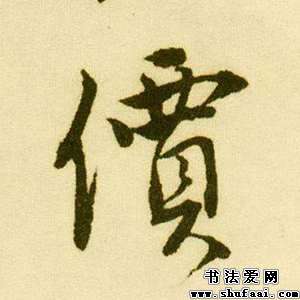 價
书法爱网
www.shufaai.com